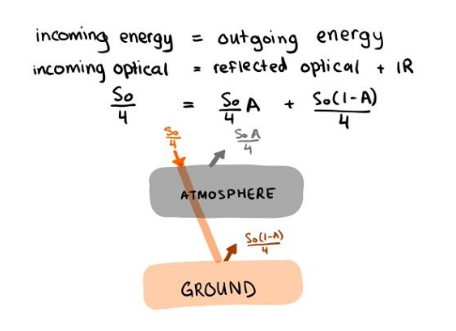 incoming energy = outgoing energy
incoming optical = reflected optical + IR
So/4 = So/4 A + So(1-A)/4
So/4
SoA/4
ATMOSPHERE
So(1-A)/4
GROUND